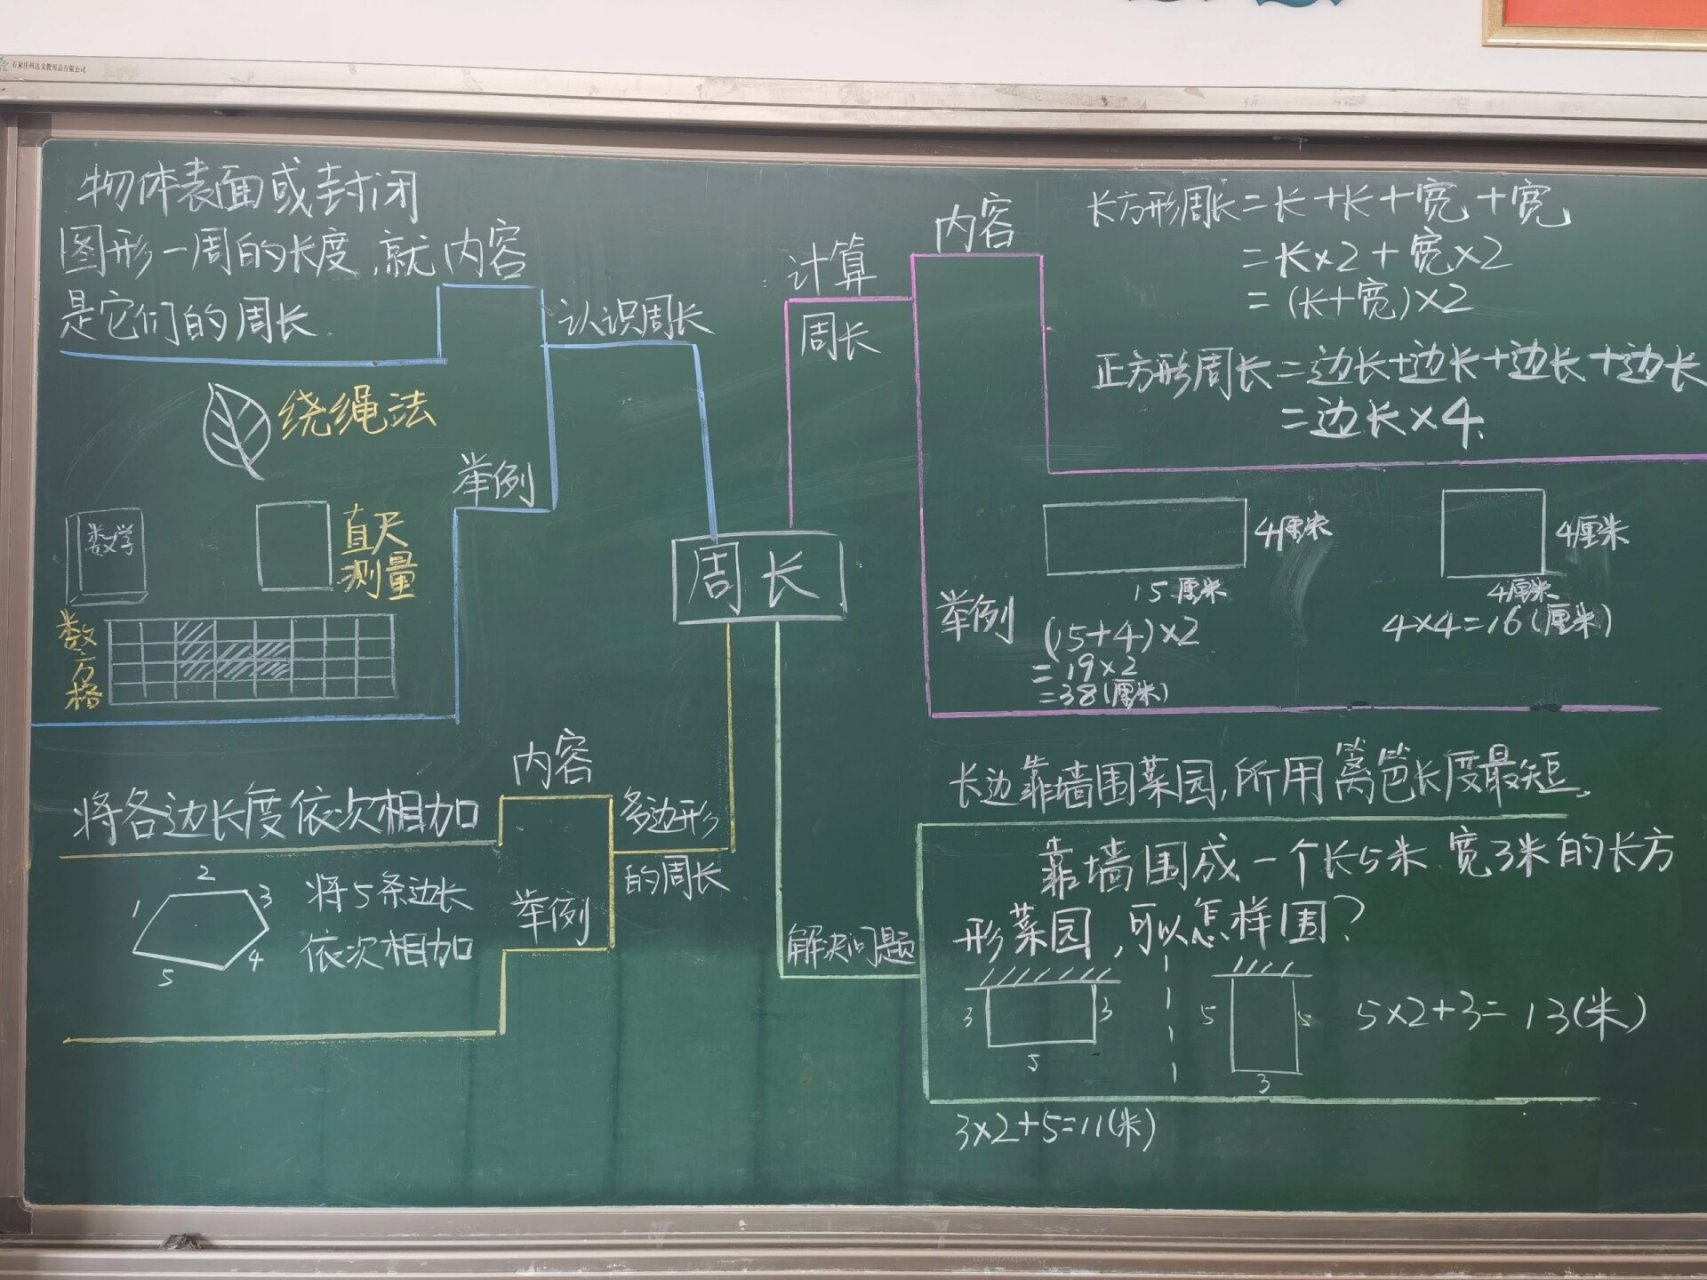 石家庄科达文教用品有限公司
物体表面或封闭
图形一周的长度,就
是它们的周长
内容
认识周长
绕绳法
举例
数学
直尺
测量
数
方
格
计算
周长
内容
长方形周长=长+长+宽+宽
=长×2+宽×2
=(长+宽)×2
正方形周长=边长+边长+边长+边长
=边长×4
举例
4厘米
15厘米
(15+4)×2
=19×2
=38(厘米)
4厘米
4厘米
4×4=16(厘米)
周长
内容
将各边长度依次相加
多边形
的周长
举例
1
2
3
4
5
将5条边长
依次相加
解决问题
长边靠墙围菜园,所用篱笆长度最短。
靠墙围成一个长5米 宽3米的长方
形菜园,可以怎样围?
3
3
5
3×2+5=11(米)
5
5
3
5×2+3=13(米)